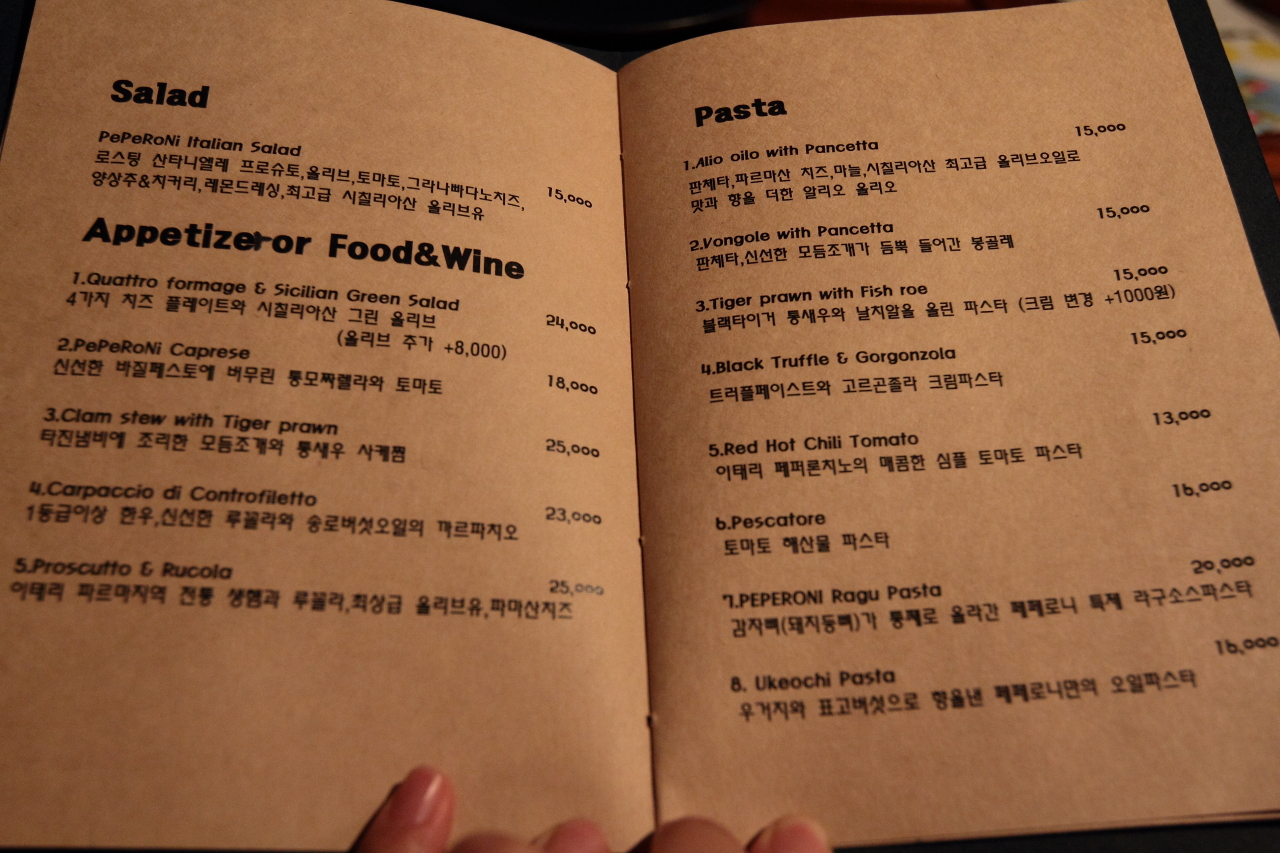 Salad
PePeRoNi Italian Salad
로스팅 산타니엘레 프로슈토,올리브,토마토,그라나빠다노치즈,
양상추&치커리,레몬드레싱,최고급 시칠리아산 올리브유 15,000
Appetizer or Food&Wine
1.Quattro formage & Sicilian Green Salad
4가지 치즈 플레이트와 시칠리아산 그린 올리브 24,000
(올리브 추가 +8,000)
2.PePeRoNi Caprese
신선한 바질페스토에 버무린 통모짜렐라와 토마토 18,000
3.Clam stew with Tiger prawn
타진냄비에 조리한 모듬조개와 통새우 사케찜 25,000
4.Carpaccio di Controfiletto
1등급이상 한우,신선한 루꼴라와 송로버섯오일의 까르파치오 23,000
5.Proscutto & Rucola 25,000
이태리 파르마지역 전통 생햄과 루꼴라,최상급 올리브유,파마산치즈
Pasta
1.Alio oilo with Pancetta 15,000
판체타,파르마산 치즈,마늘,시칠리아산 최고급 올리브오일로
맛과 향을 더한 알리오 올리오
2.Vongole with Pancetta 15,000
판체타,신선한 모듬조개가 듬뿍 들어간 봉골레
3.Tiger prawn with Fish roe 15,000
블랙타이거 통새우와 날치알을 올린 파스타 (크림 변경 +1000원)
4.Black Truffle & Gorgonzola 15,000
트러플페이스트와 고르곤졸라 크림파스타
5.Red Hot Chili Tomato 13,000
이태리 페퍼론치노의 매콤한 심플 토마토 파스타
6.Pescatore 16,000
토마토 해산물 파스타
7.PEPERONI Ragu Pasta 20,000
감자뼈(돼지등뼈)가 통째로 올라간 페페로니 특제 라구소스파스타
8. Ukeochi Pasta 16,000
우거지와 표고버섯으로 향을낸 페페로니만의 오일파스타